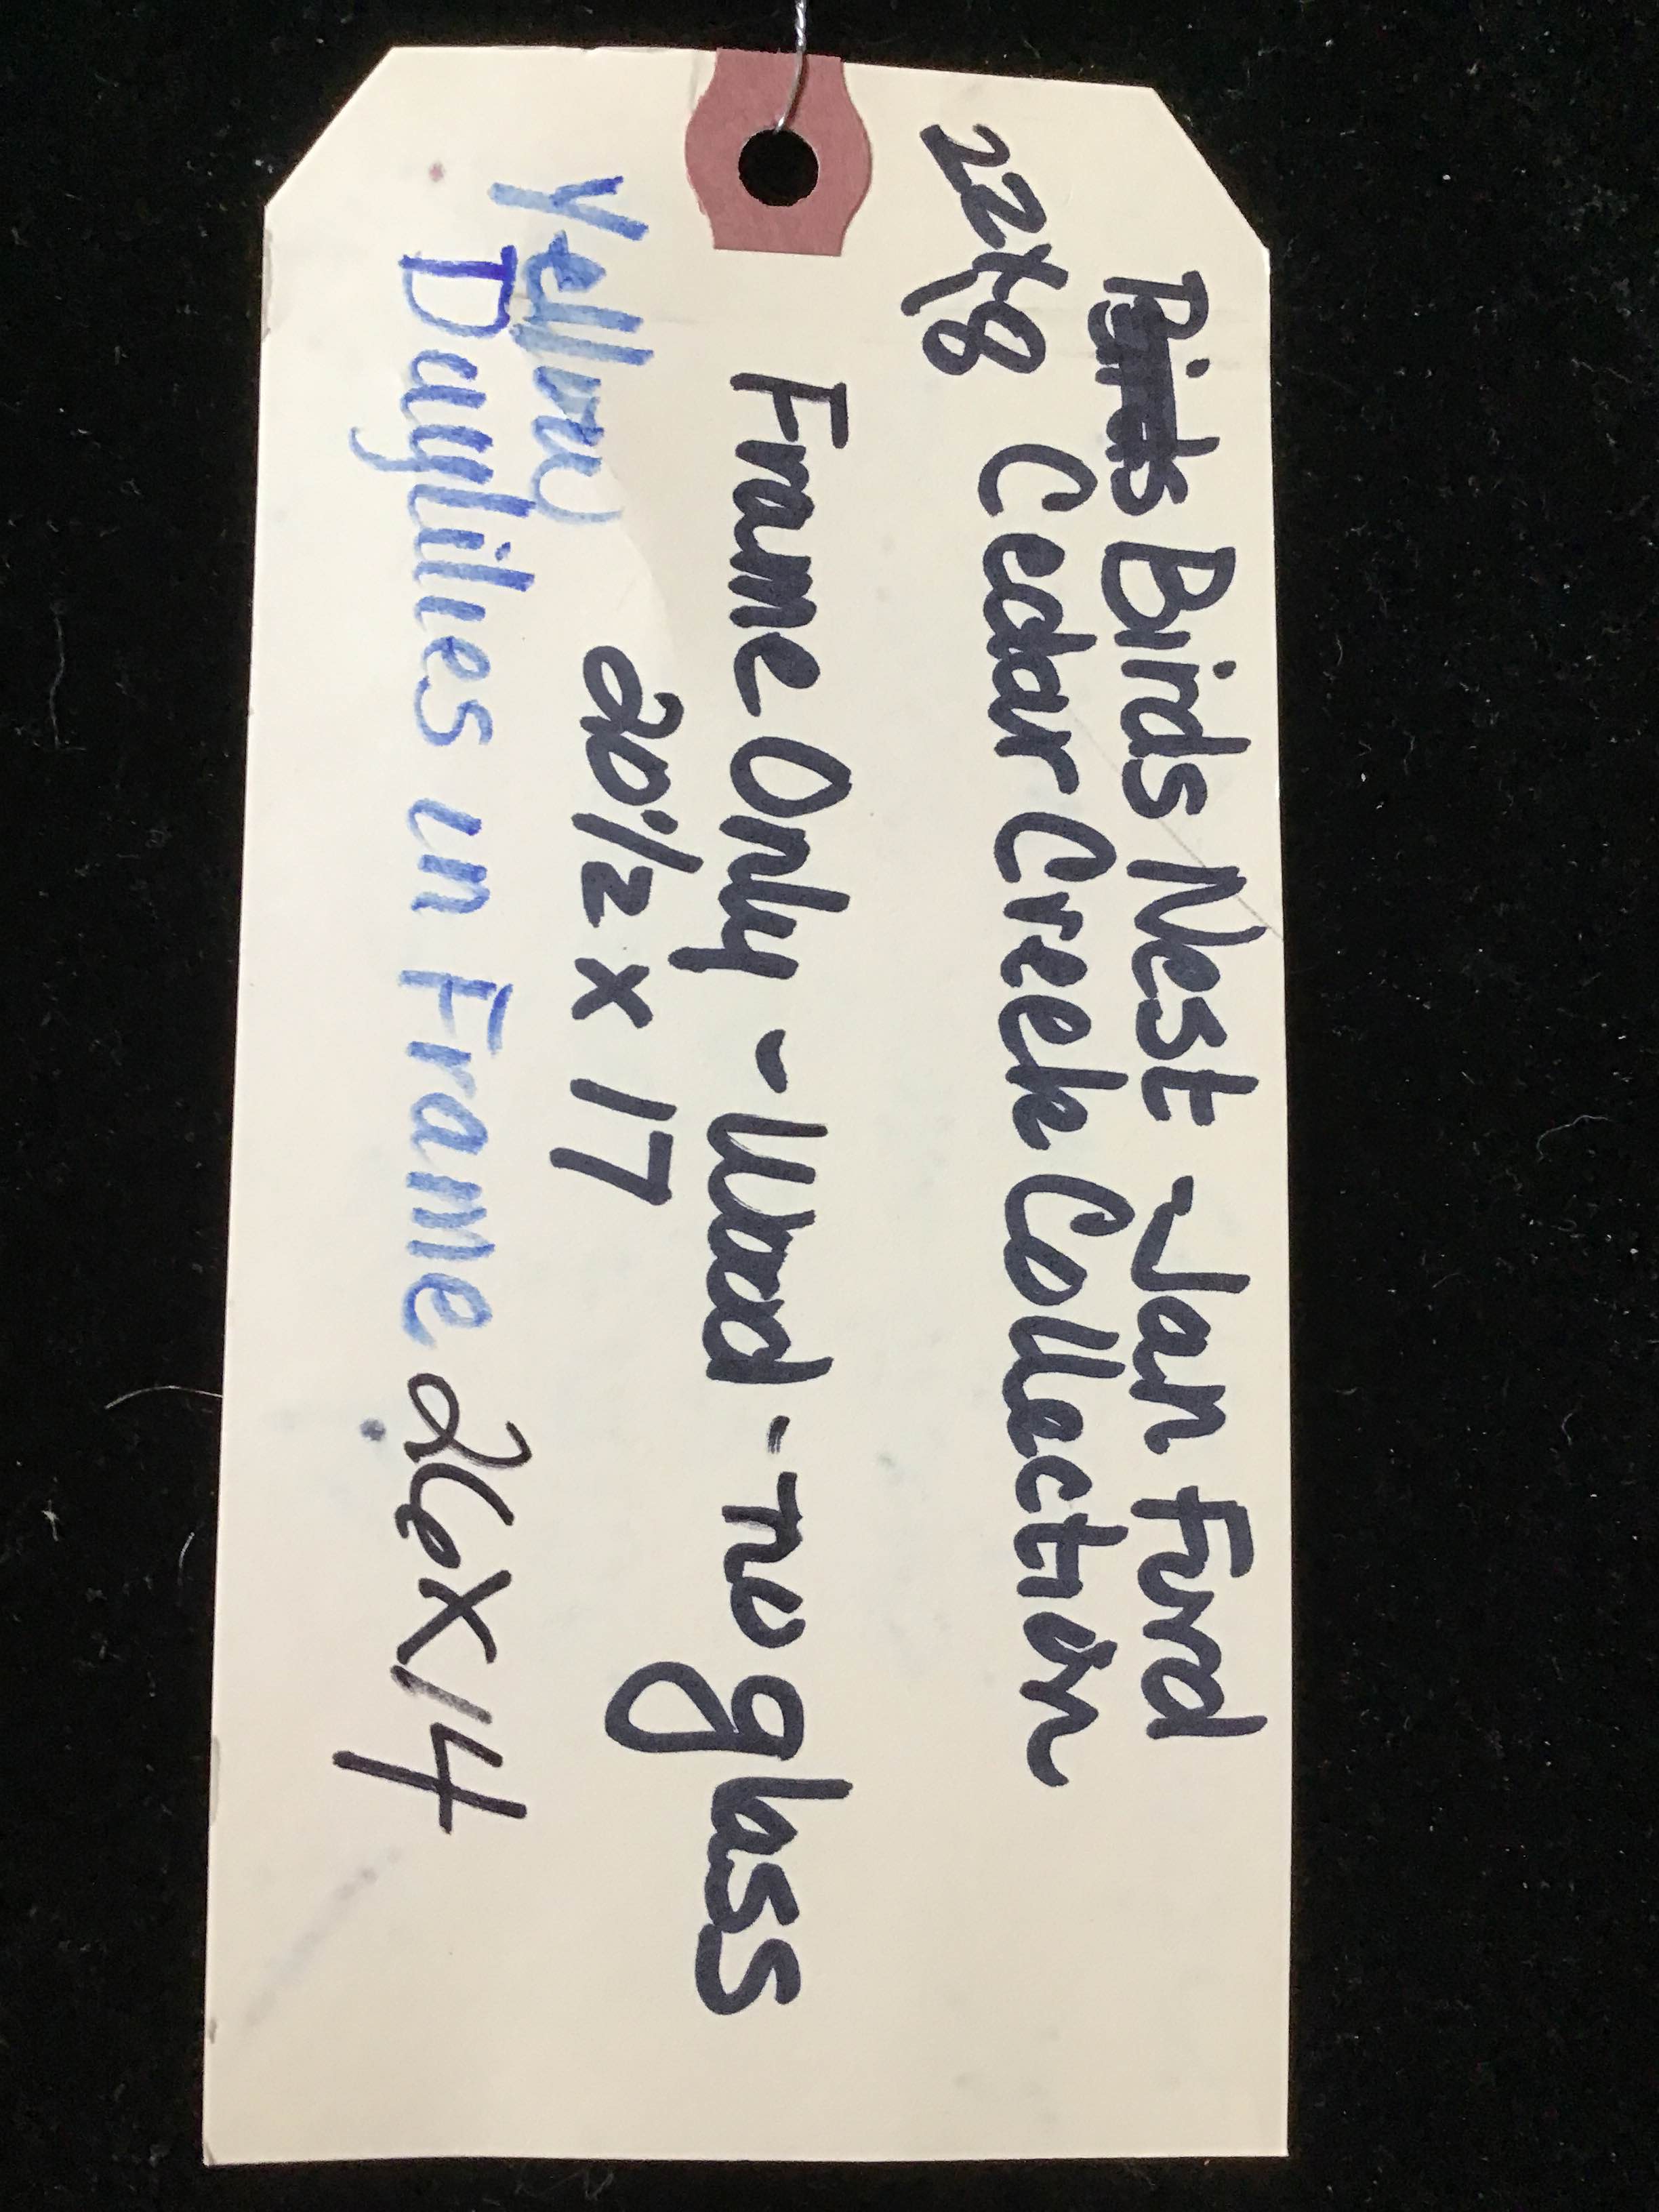 Birds Nest - Jan Ford
22x18 Cedar Creek Collection
Frame Only - Wood - no glass
20 1/2 x 17
Yellow
Daylilies in Frame 26x14